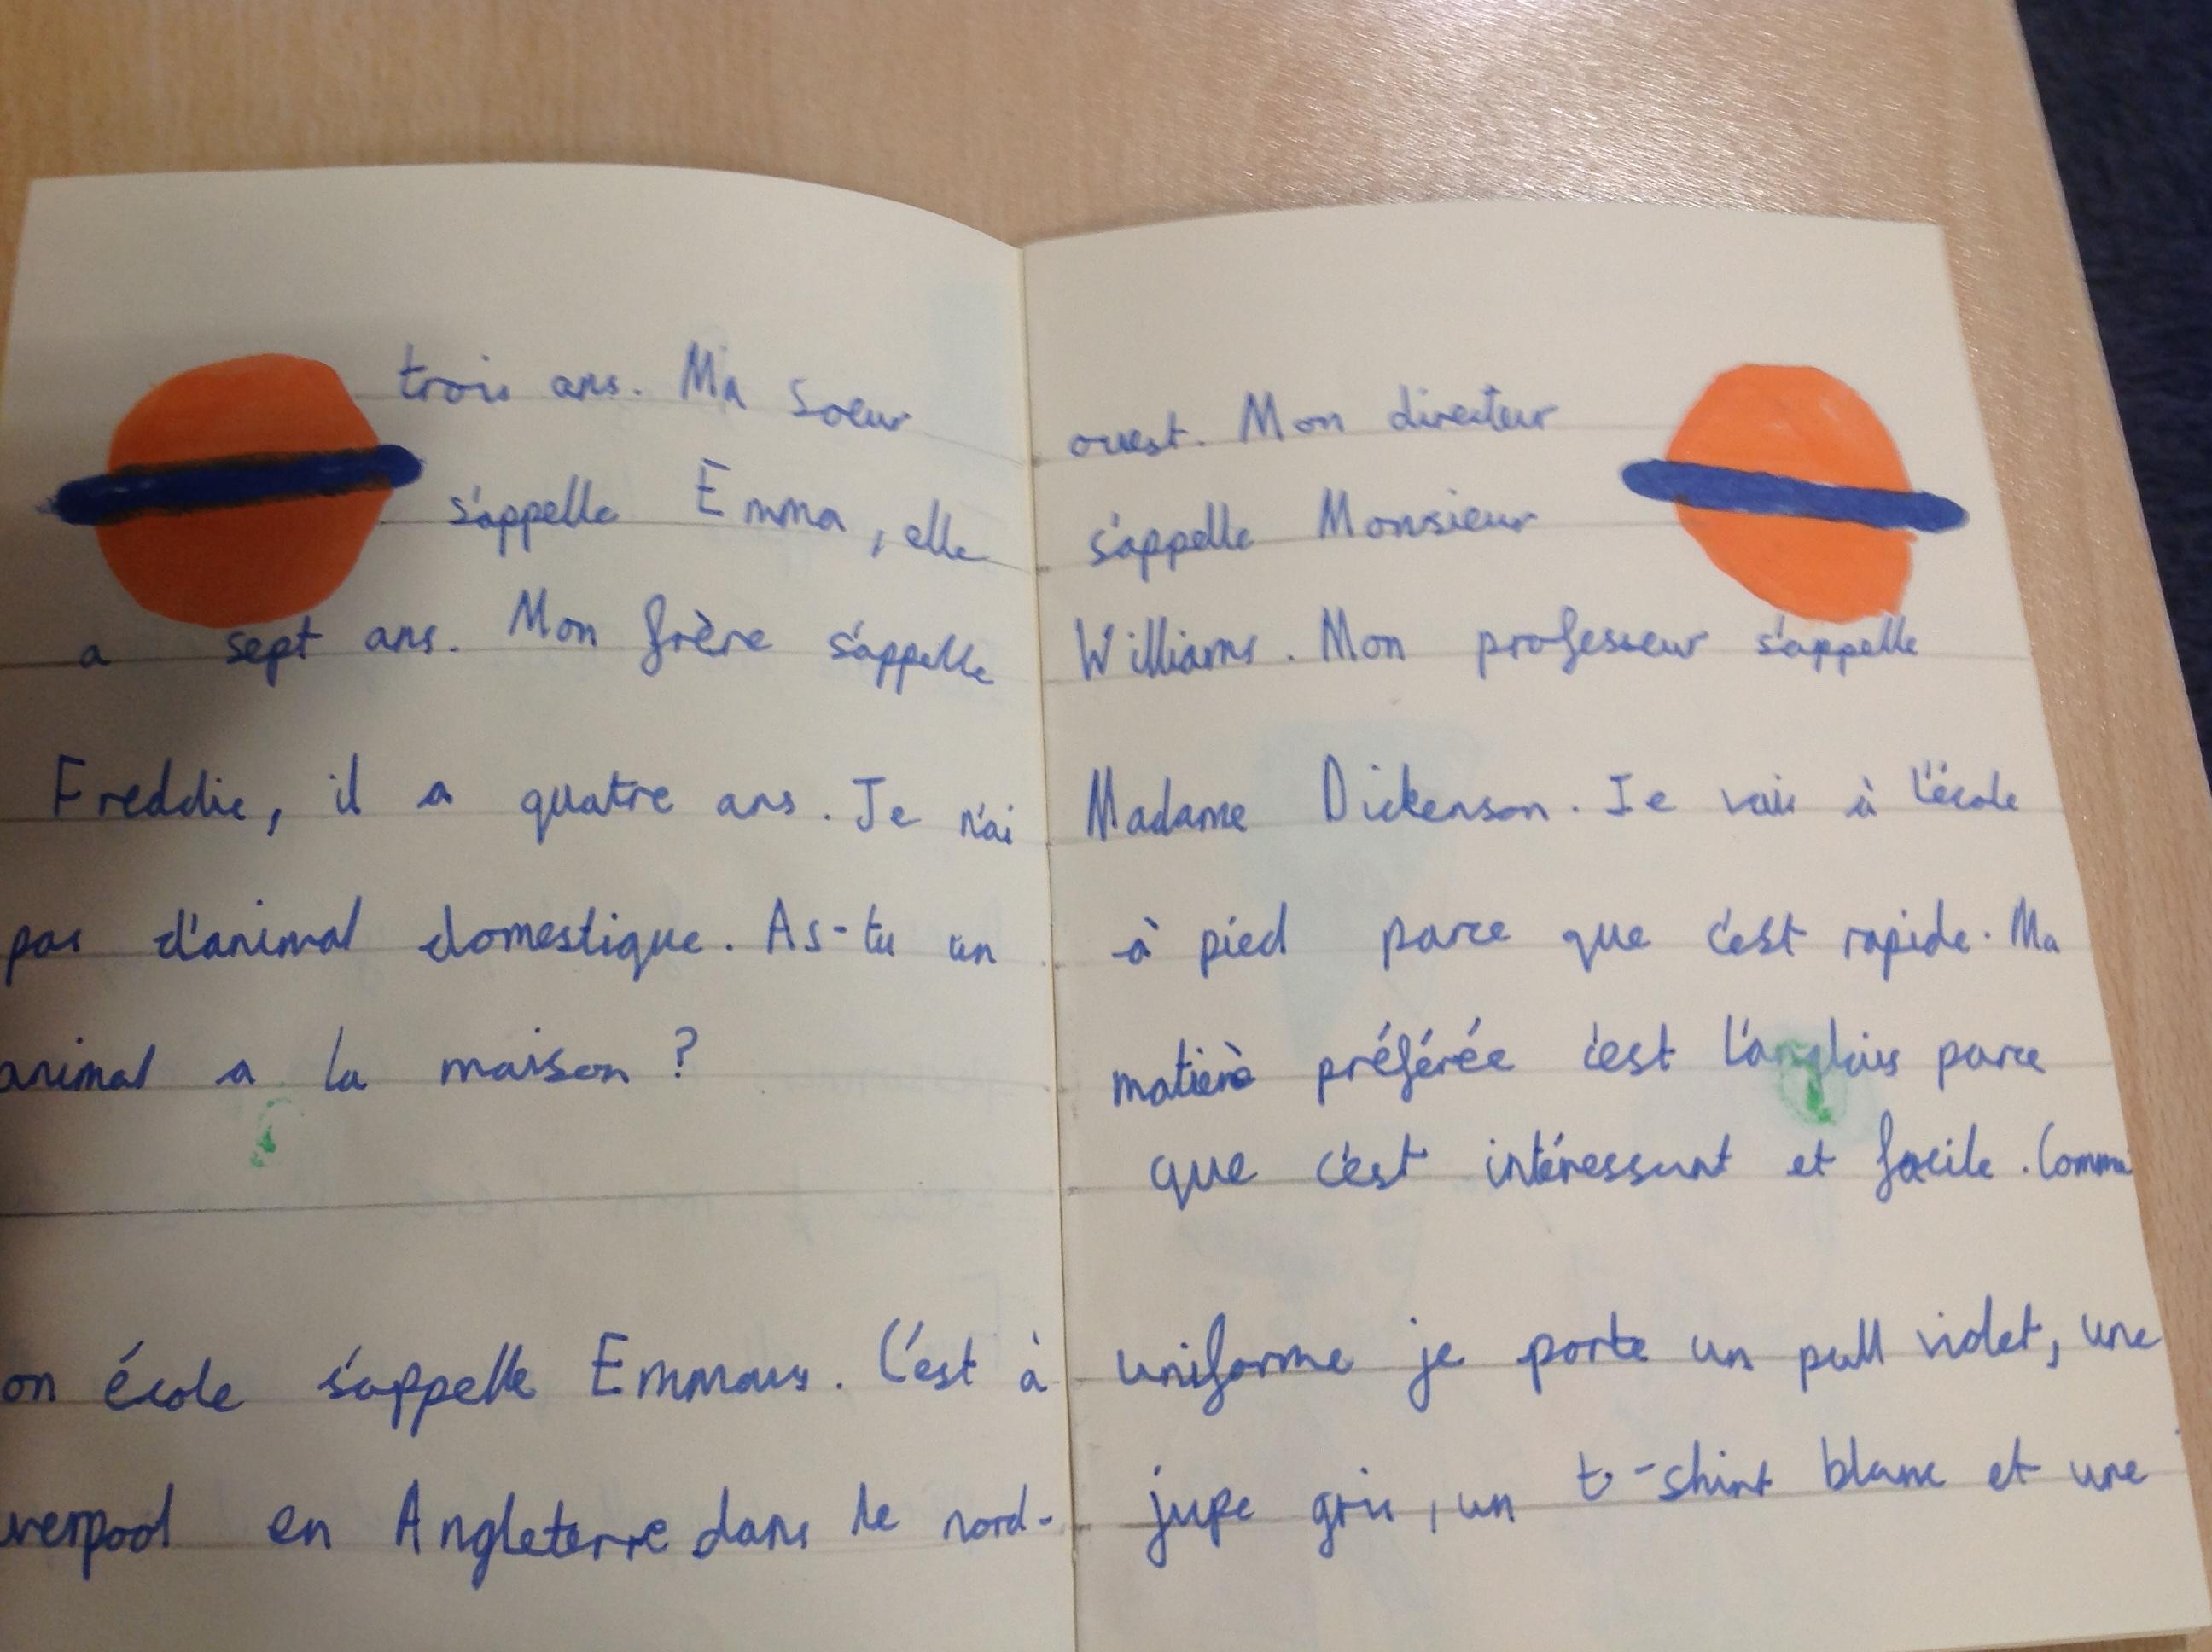 trois ans. Ma soeur
s'appelle Emma, elle
a sept ans. Mon frère s'appelle
Freddie, il a quatre ans. Je n'ai
pas d'animal domestique. As-tu un
animal a la maison ?
on école s'appelle Emmaus. C'est à
verpool en Angleterre dans le nord-
ouest. Mon directeur
s'appelle Monsieur
Williams. Mon professeur s'appelle
Madame Dickenson. Je vais à l'école
à pied parce que c'est rapide. Ma
matierè préférée c'est l'anglais parce
que c'est intéressant et facile. Comme
uniforme je porte un pull violet, une
jupe gris, un t-shirt blanc et une